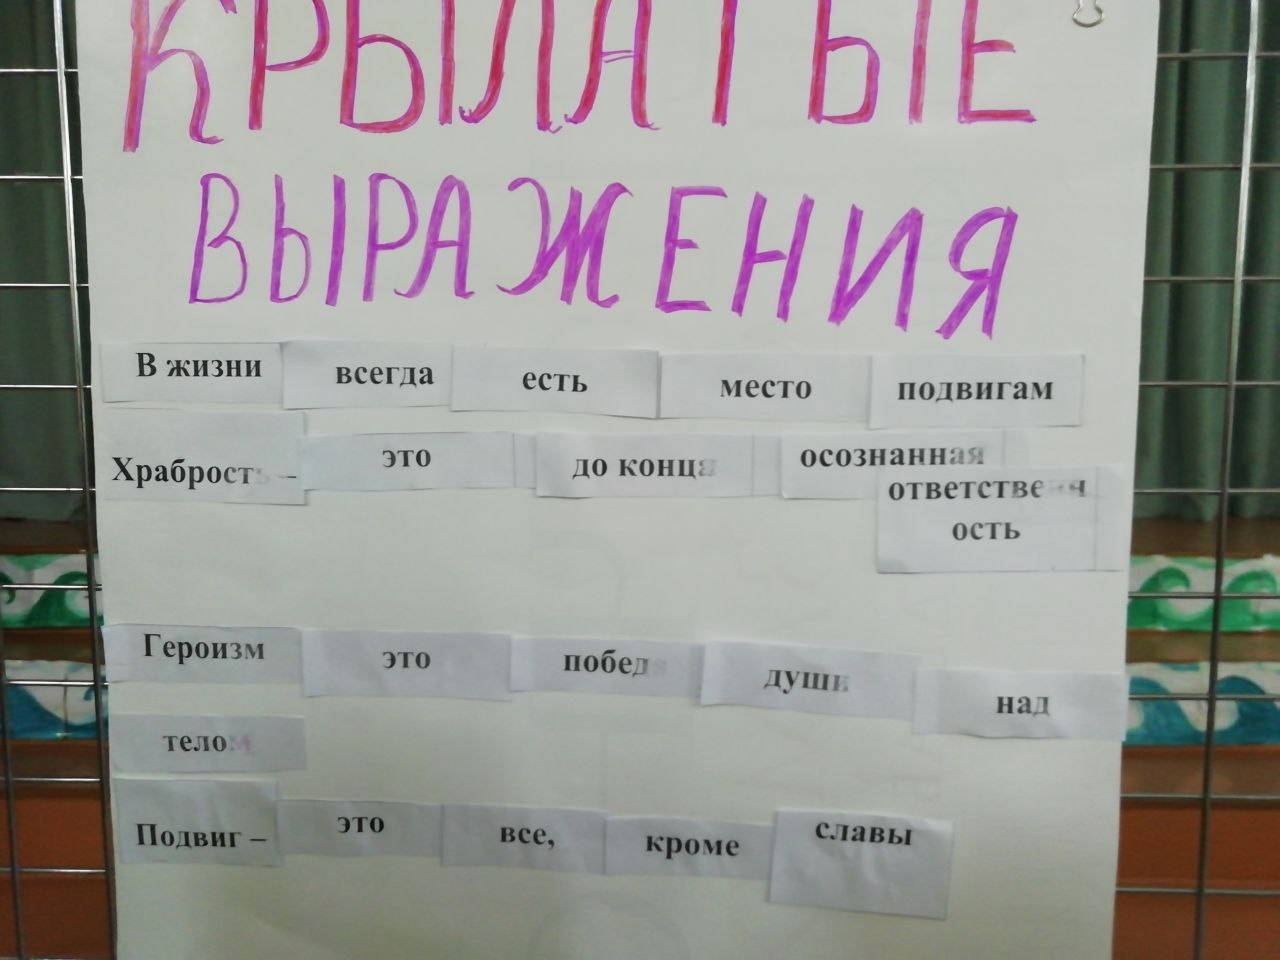 КРЫЛАТЫЕ
ВЫРАЖЕНИЯ
В жизни всегда есть место подвигам
Храбрость – это до конца осознанная
ответственн
ость
Героизм это победа души над
телом
Подвиг – это все, кроме славы